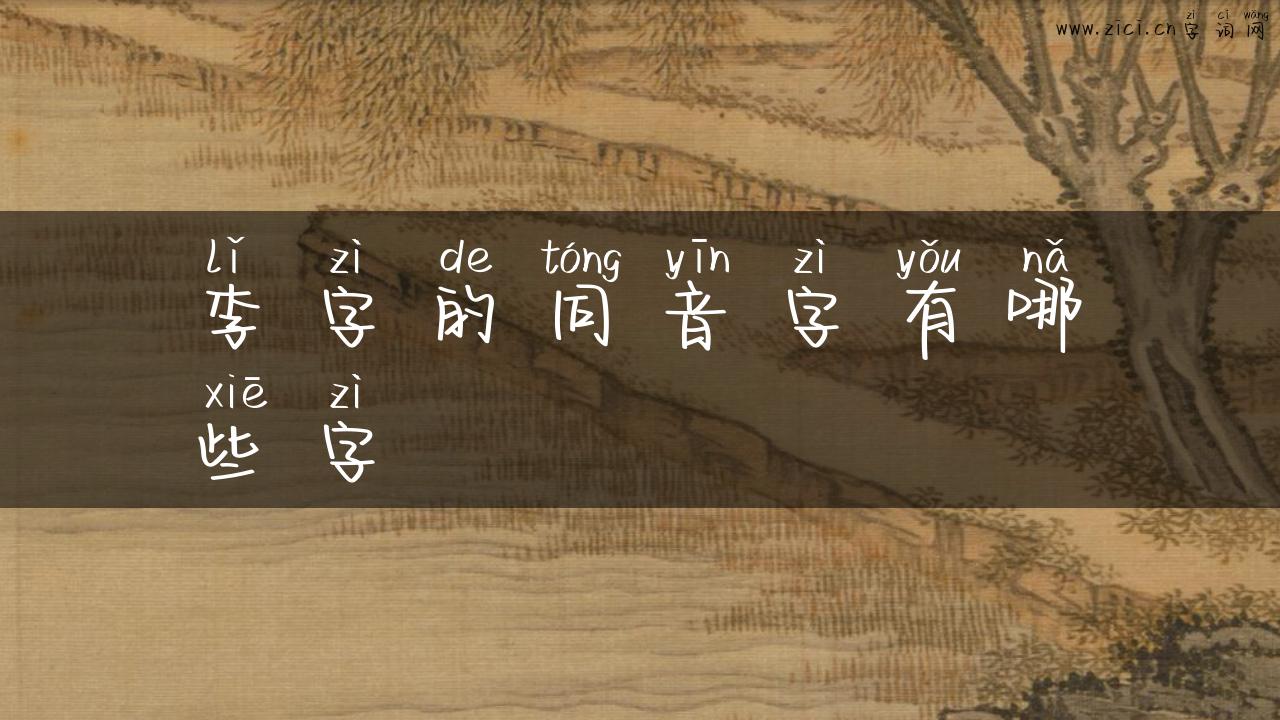 zì cí wǎng
www.zici.cn字词网
lǐ zì de tóng yīn zì yǒu nǎ
李字的同音字有哪
xiē zì
些字